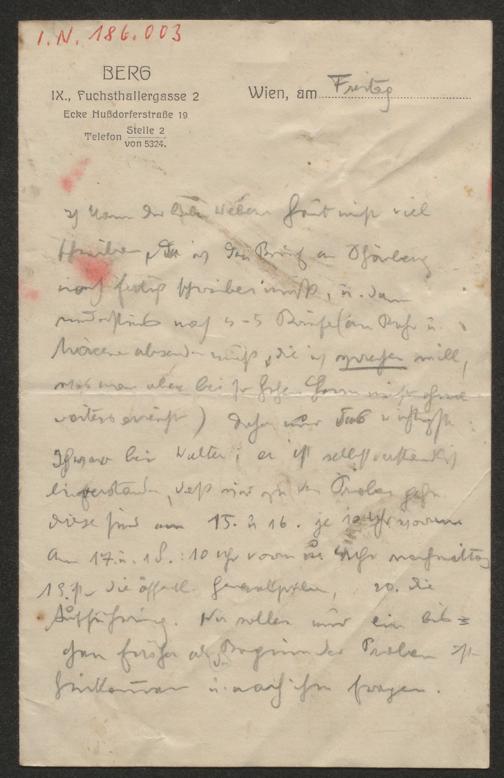 I.N. 186.003
BERG
IX., Fuchsthallergasse 2
Ecke Nußdorferstraße 19
Telefon Stelle 2
von 5324.
Wien, am Freitag
Ich kann dir lieber Webern heut nicht viel
schreiben, da ich den Brief an Schönberg
noch fertig schreiben muß, u. dann
mindestens noch 4-5 Briefe (an Ruhr u.
absenden muß, die ich sprechen will,
was man aber bei so hohen Herrn nicht ohne
weiters erreicht) daher nur das wichtigste:
Ich war bei Walter; er ist selbstverständlich
einverstanden, daß wir zu den Proben gehn
diese sind am 15. u 16. je 10 Uhr vorm
am 17. u. 18.: 10 Uhr vorm Uhr nachmittag
19. ist die öffentl. Generalprobe, 20. die
Aufführung. Wir sollen nur ein bis=
chen früher als Beginn der Proben ist
hinkommen u. nach ihm fragen.